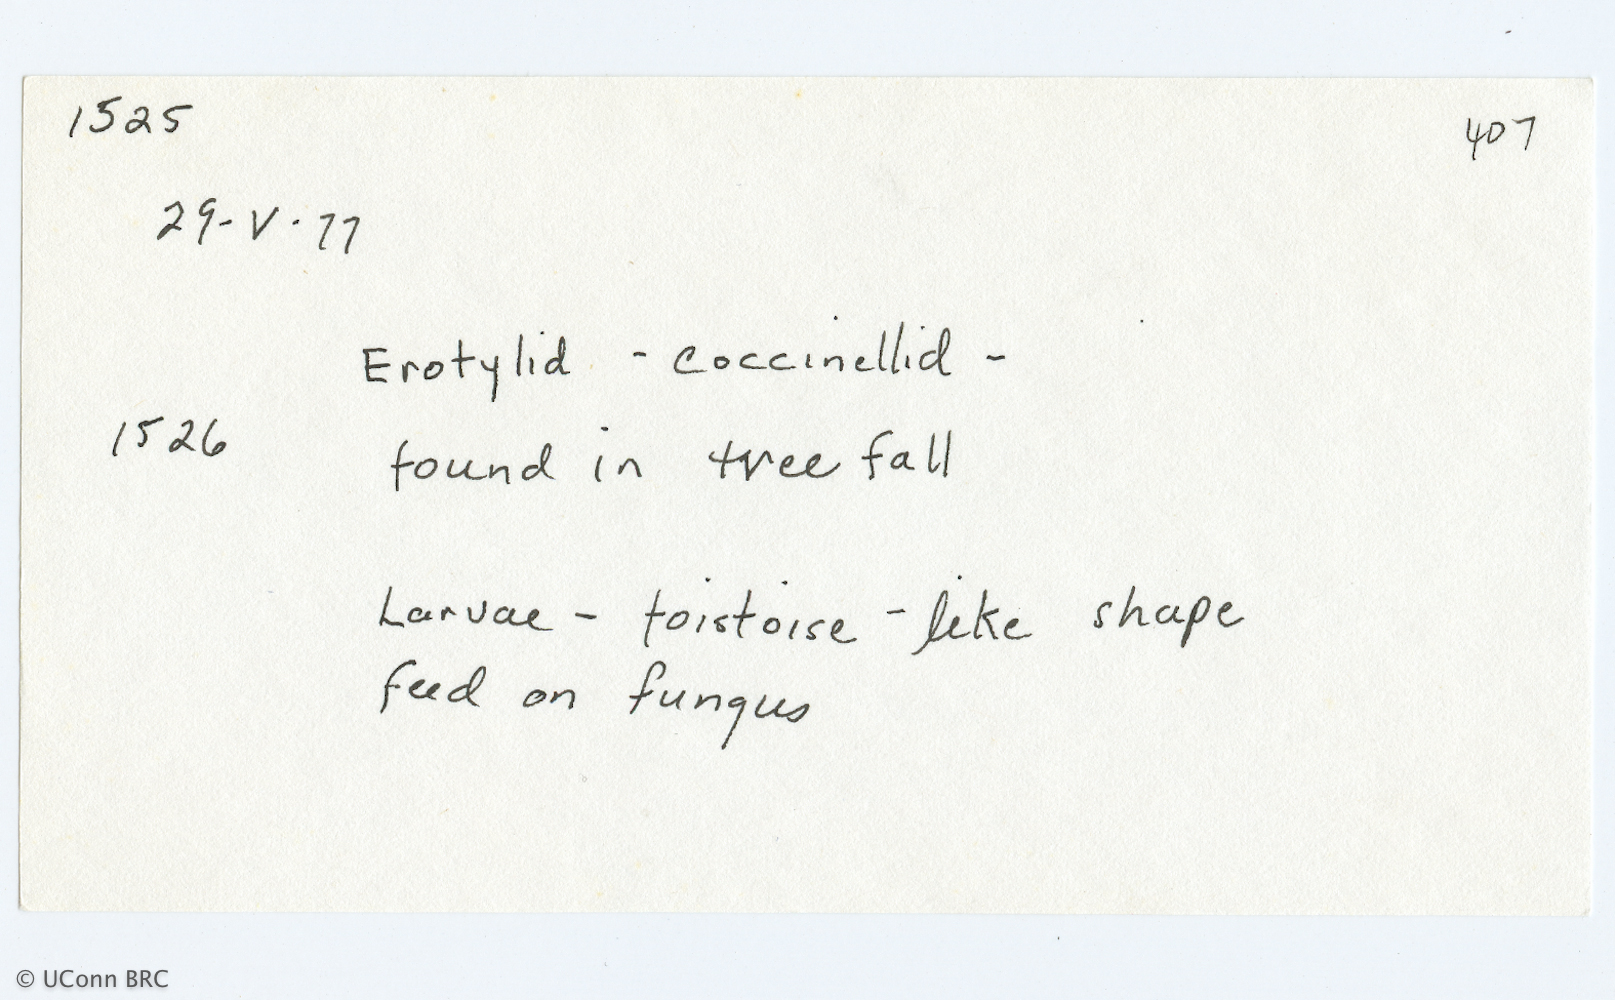 1525
407
29-V-77
Erotylid - coccinellid -
1526
found in tree fall
Larvae - toistoise - like shape
feed on fungus
© UConn BRC